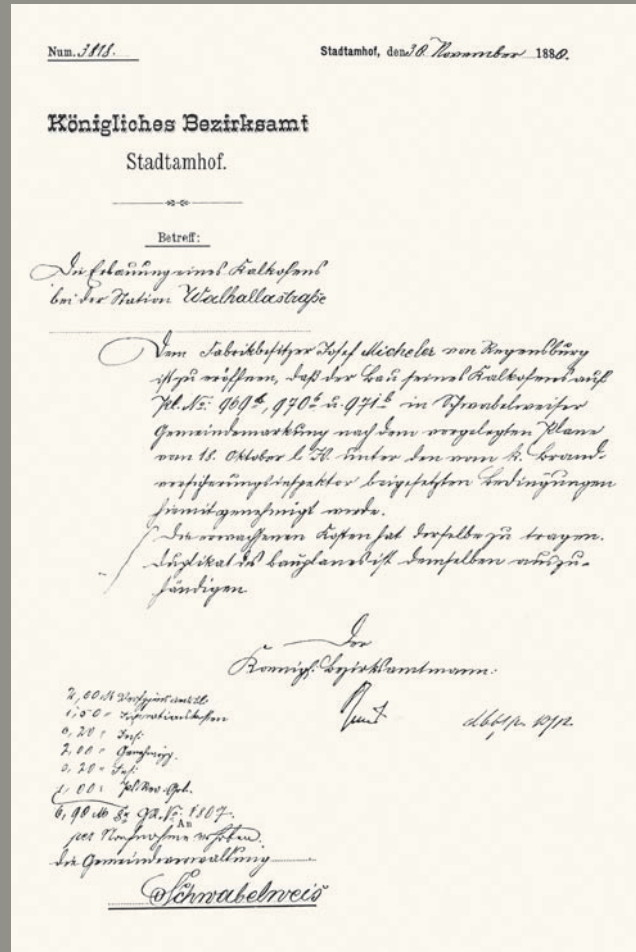 Num. 3818.
Stadtamhof, den 30. November 1880.
Königliches Bezirksamt
Stadtamhof.
Betreff:
Die Erbauung eines Kalkofens
bei der Station Walhallastraße
Dem Fabrikbesitzer Josef Micheler von Regensburg
ist zu eröffnen, daß der Bau seines Kalkofens auf
Pl. No: 969 970 u. 971 in Schwabelweiser
Gemeindemarkung nach dem vorgelegten Plane
vom 18. Oktober l. Js. unter den vom k. Brand-
versicherungsinspektor beigesetzten Bedingungen
hiemit genehmigt werde.
Die erwachsenen Kosten hat derselbe zu tragen.
Duplikat des Bauplanes ist demselben auszu-
händigen
Der
Koenigl. Bezirksamtmann:
1,50
0,20
2,00 Genehmigg.
0,20
1,00
6,90 M No: 1807.
per Nachnahme erhoben.
An
die Gemeindeverwaltung
Schwabelweis